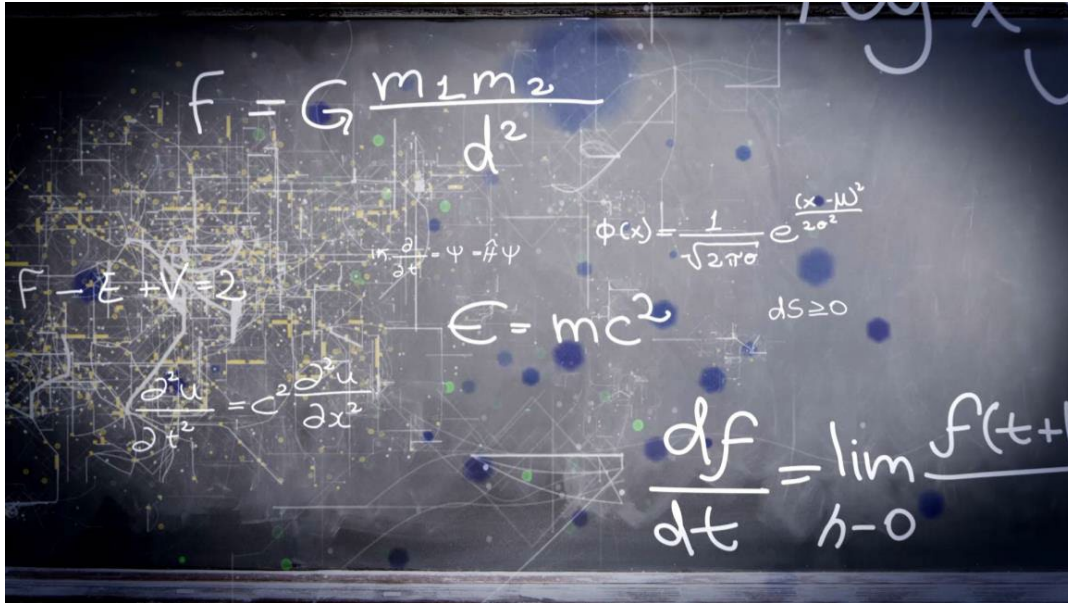 log x
y
F = G m1m2/d²
ϕ(x) = 1/√2πσ e^(x-μ)²/2σ²
∂/∂t = Ψ = ĤΨ
F - E + V = 2
E = mc²
dS ≥ 0
∂²u/∂t² = c² ∂²u/∂x²
df/dt = lim h-0 f(t+